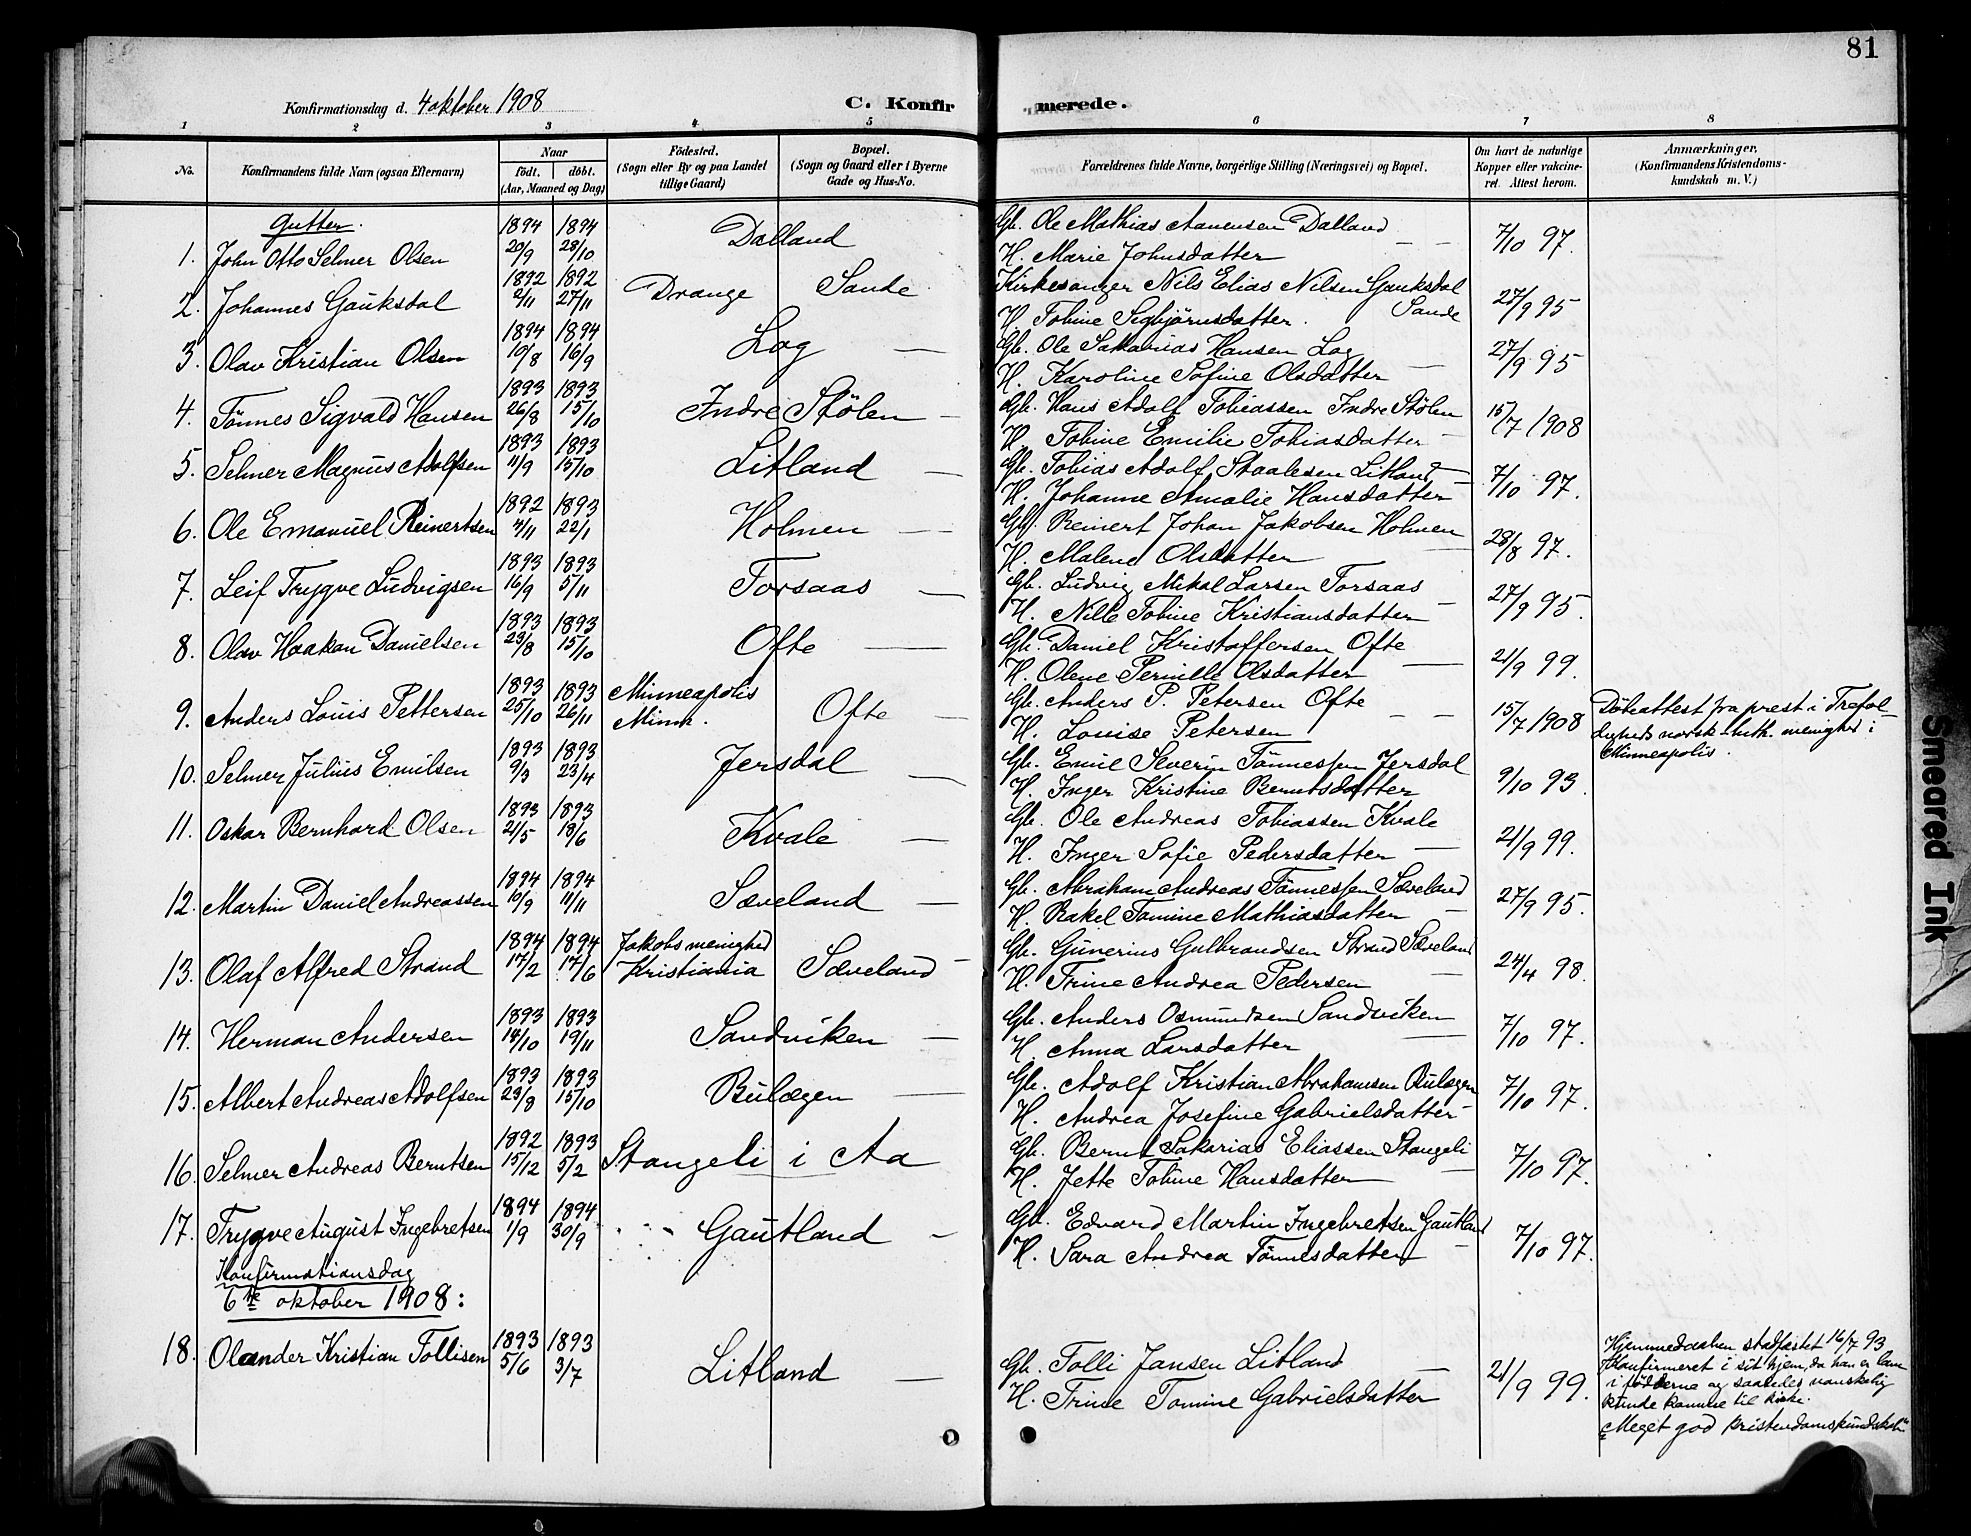 81
Konfirmationsdag d. 4 oktober 1908 C. Konfir merede.
1 2 3 4 5 6 7 8
No. Konfirmandens fulde Navn (ogsaa Efternavn) Naar födt. döbt. (Aar, Maaned og Dag) Födested. (Sogn eller By og paa Landet tillige Gaard) Bopæl. (Sogn og Gaard eller i Byerne Gade og Hus-No. Forældrenes fulde Navne, borgerlige Stilling (Næringsvei) og Bopæl. Om havt de naturlige Kopper eller vakcineret. Attest herom. Anmærkninger. (Konfirmandens Kristendomskundskab m. V.)
Gutter.
1. John Otto Selmer Olsen 1894 20/9 1894 28/10 Dalland Gb. Ole Mathias Aanensen Dalland — — 7/10 97.
H. Marie Johnsdatter
2. Johannes Gauksdal 1892 2/11 1892 27/11 Drange Sande Kirkesanger Nils Elias Nilsen Gauksdal Sande 27/9 95
H. Tobine Sigbjörnsdatter.
3. Olav Kristian Olsen 1894 10/8 1894 16/9 Log — Gb. Ole Sakarias Hansen Log 27/9 95
H. Karoline Sofine Olsdatter —
4. Tönnes Sigvald Hansen 1893 26/8 1893 15/10 Indre Stölen — Gb. Hans Adolf Tobiassen Indre Stölen 15/7 1908
H. Tobine Emilie Tobiasdatter —
5. Selmer Magnus Adolfsen 1893 11/9 1893 15/10 Litland — Gb. Tobias Adolf Staalesen Litland 7/10 97.
H. Johanne Amalie Hansdatter
6. Ole Emanuel Reinertsen 1892 4/11 1893 22/1 Holmen — Gb. Reinert Johan Jakobsen Holmen 28/8 97.
H. Malene Olsdatter —
7. Leif Trygve Ludvigsen 1893 16/9 1893 5/11 Torsaas — Gb. Ludvig Mikal Larsen Torsaas 27/9 95.
H. Nille Tobine Kristiansdatter —
8. Olav Haakon Danielsen 1893 23/8 1893 15/10 Ofte — Gb. Daniel Kristoffersen Ofte 21/9 99.
H. Olene Pernille Olsdatter —
9. Anders Louis Pettersen 1893 25/10 1893 26/11 Minneapolis Minn. Ofte — Gb. Anders P. Petersen Ofte — — 15/7 1908 Döbeattest fra prest i Trefoldigheds norsk-luth. menighed i Minneapolis.
H. Louise Petersen
10. Selmer Julius Emilsen 1893 9/3 1893 23/4 Jersdal — Gb. Emil Severin Tönnessen Jersdal 9/10 93.
H. Inger Kristine Berntsdatter
11. Oskar Bernhard Olsen 1893 21/5 1893 18/6 Kvale — Gb. Ole Andreas Tobiassen Kvale 21/9 99.
H. Inger Sofie Pedersdatter —
12. Martin Daniel Andreassen 1894 10/9 1894 11/11 Sæveland — Gb. Abraham Andreas Tönnessen Sæveland 27/9 95.
H. Rakel Tomine Mathiasdatter —
13. Olaf Alfred Strand 1894 17/2 1894 17/6 Jakobs menighed Kristiania Sæveland — Gb. Gunerius Gulbrandsen Strand Sæveland 24/4 98.
H. Trine Andrea Pedersen —
14. Herman Andersen 1893 14/10 1893 19/11 Sandviken — Gb. Anders Osmundsen Sandviken 7/10 97.
H. Anna Larsdatter —
15. Albert Andreas Adolfsen 1893 23/8 1893 15/10 Bulægen — Gb. Adolf Kristian Abrahamsen Bulægen 7/10 97.
H. Andrea Josefine Gabrielsdatter —
16. Selmer Andreas Berntsen 1892 15/12 1893 5/2 Stangeli i Aa Gb. Bernt Sakarias Eliassen Stangeli 7/10 97.
H. Jette Tobine Hansdatter —
17. Trygve August Ingebretsen 1894 1/9 1894 30/9 Gautland — Gb. Edvard Martin Ingebretsen Gautland 7/10 97.
H. Sara Andrea Tönnesdatter —
Konfirmationsdag
6te oktober 1908:
18. Olander Kristian Tollisen 1893 5/6 1893 3/7 Litland — Gb. Tolli Jansen Litland — 21/9 99.
H. Trine Tomine Gabrielsdatter
Hjemmedaaben stadfæstet 16/7 93
Konfirmeret i sit hjem, da han er lam
i födderne og saaledes vanskelig
kunde komme til kirke.
"Meget god kristendomskundskab"
Smeared Ink